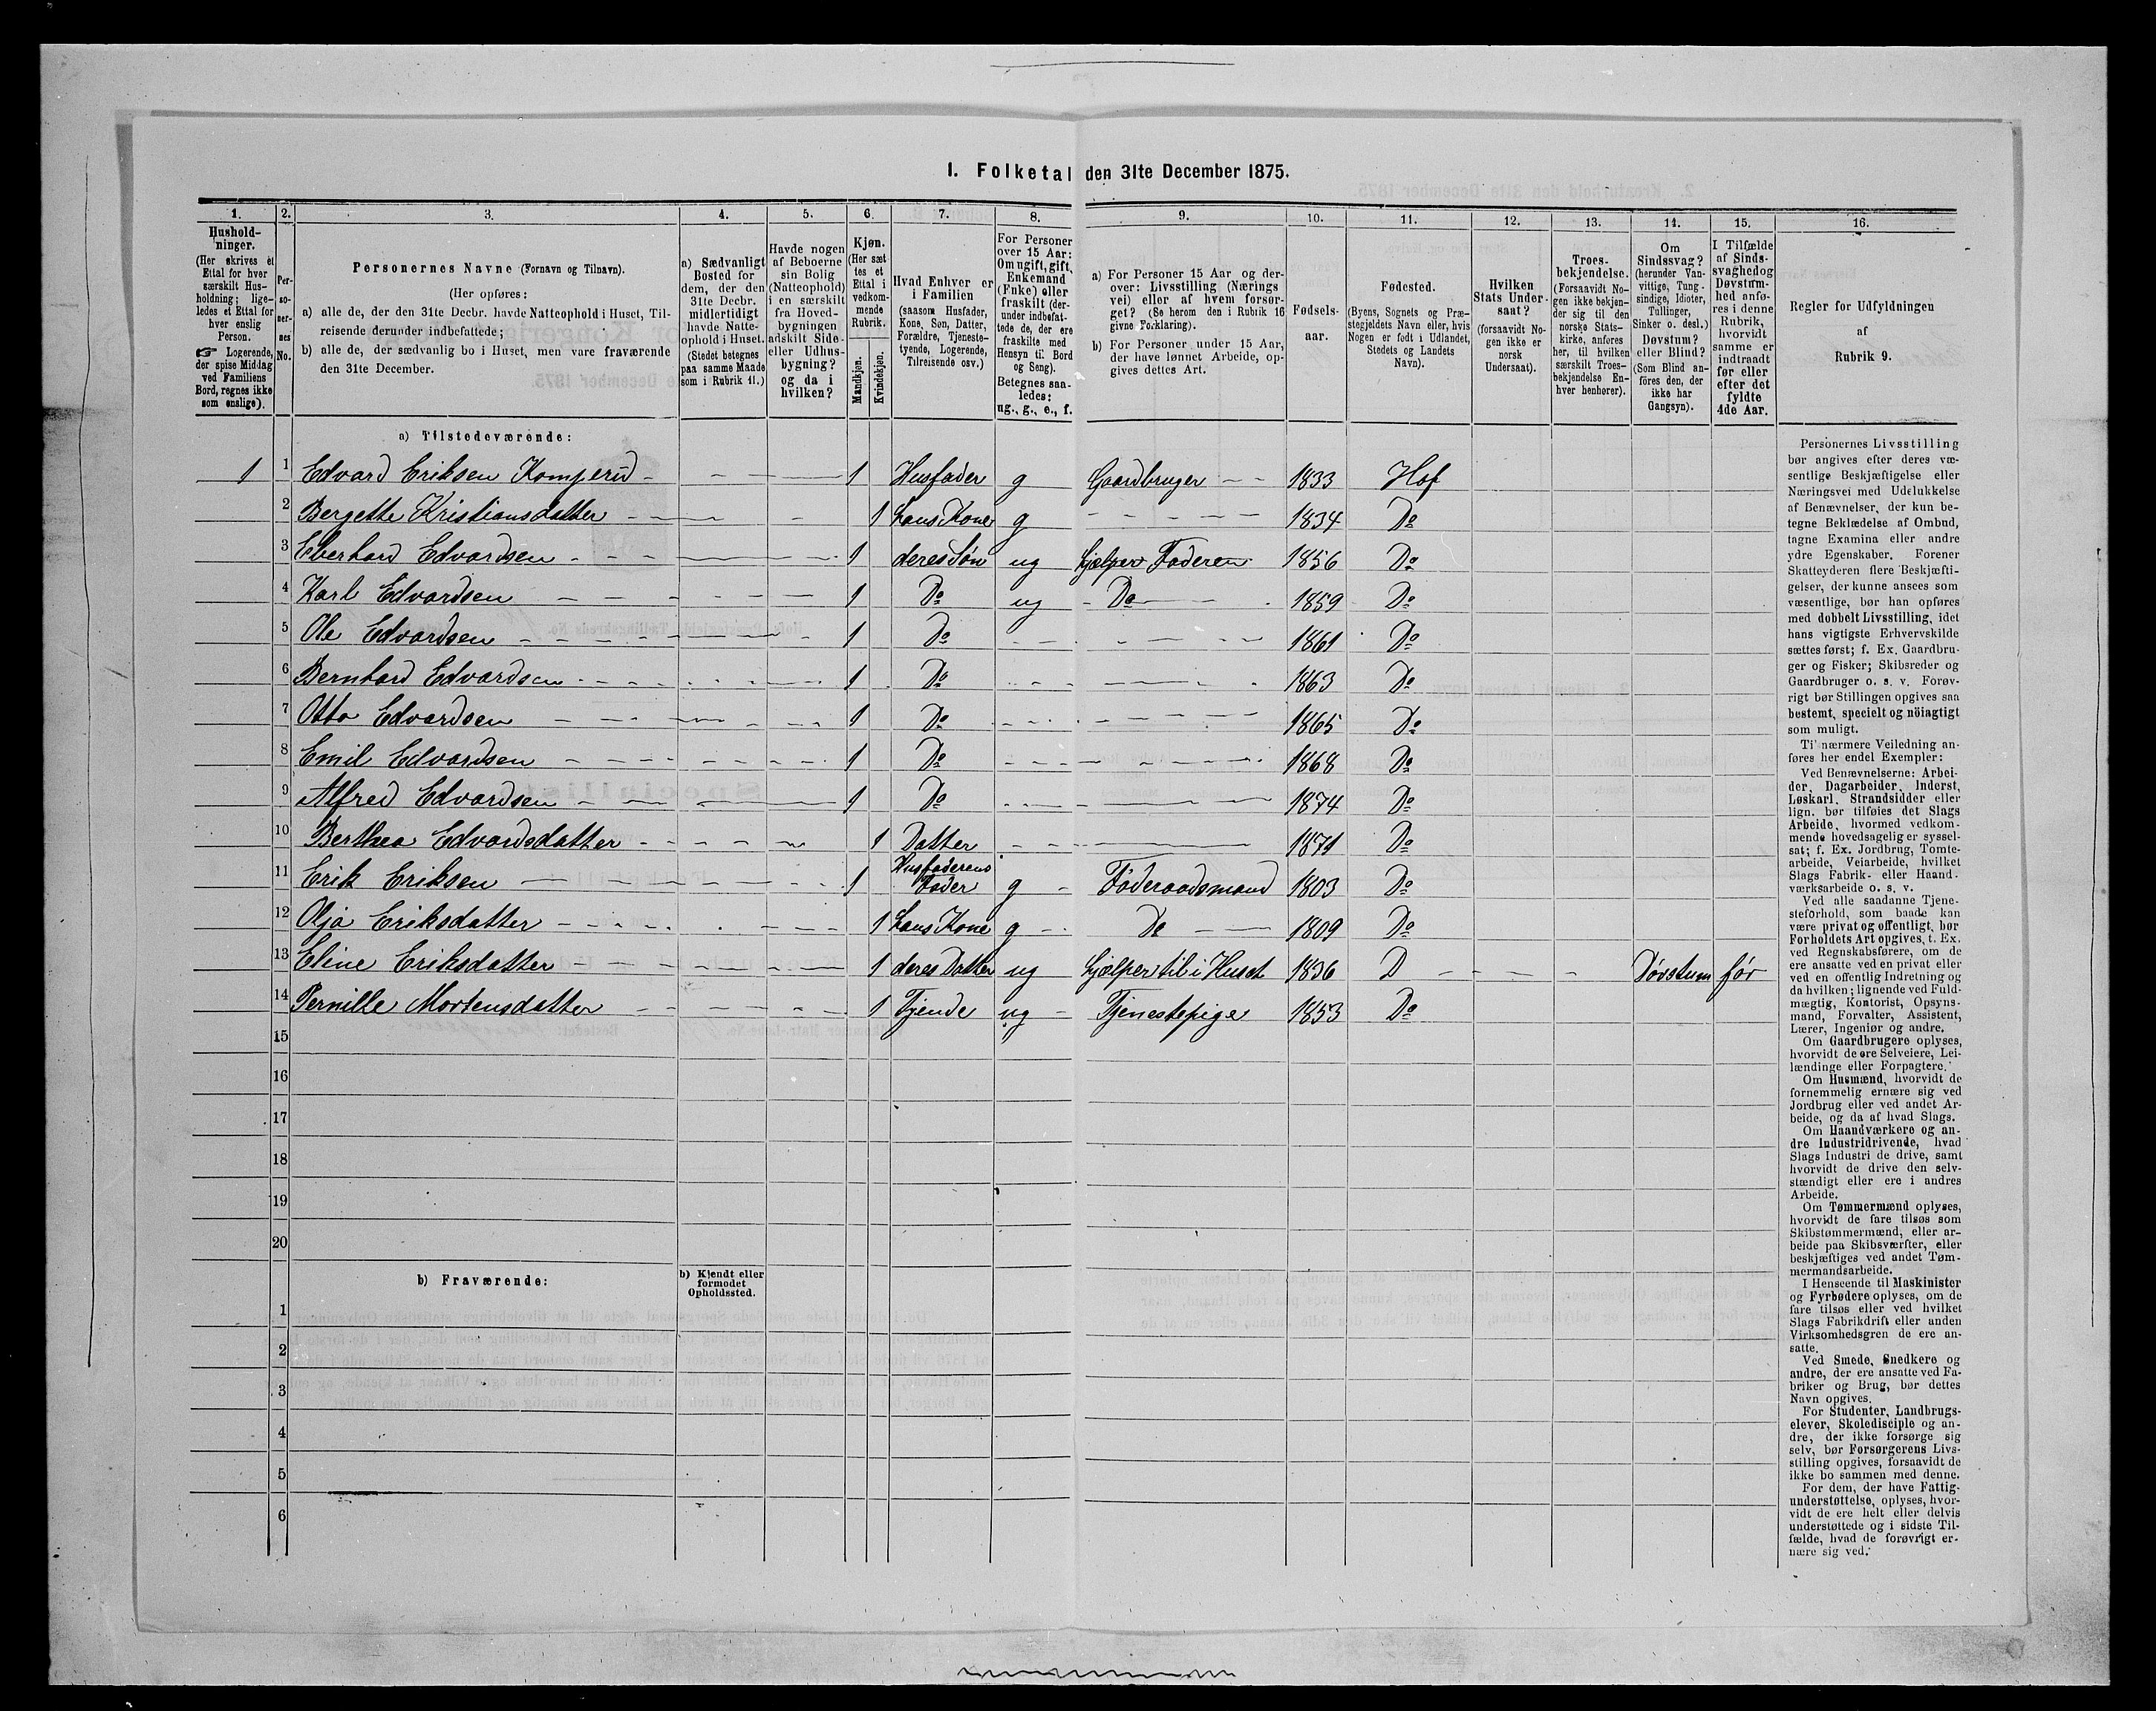 I. Folketal den 31te December 1875.
1. 2. 3. 4. 5. 6. 7. 8. 9. 10. 11. 12. 13. 14. 15. 16.
Hushold-
ninger.
(Her skrives ét
Ettal for hver
særskilt Hus-
holdning; lige-
ledes et Ettal for
hver enslig
Person.
☞ Logerende,
der spise Middag
ved Familiens
Bord, regnes ikke
som enslige).
Per-
so-
ner-
nes
No.
Personernes Navne (Fornavn og Tilnavn).
(Her opføres:
a) alle de, der den 31te Decbr. havde Natteophold i Huset, Til-
reisende derunder indbefattede;
b) alle de, der sædvanlig bo i Huset, men vare fraværende
den 31te December.
a) Sædvanligt
Bosted for
dem, der den
31te Decbr.
midlertidigt
havde Natte-
ophold i Huset.
(Stedet betegnes
paa samme Maade
som i Rubrik 11.)
Havde nogen
af Beboerne
sin Bolig
(Natteophold)
i en særskilt
fra Hoved-
bygningen
adskilt Side-
eller Udhus-
bygning?
og da i
hvilken?
Kjøn.
(Her sæt
tes et
Ettal i
vedkom-
mende
Rubrik.
Mandkjøn.
Kvindekjøn.
Hvad Enhver er
i Familien
(saasom Husfader,
Kone, Søn, Datter,
Forældre, Tjeneste-
tyende, Logerende,
Tilreisende osv.)
For Personer
over 15 Aar:
Om ugift, gift,
Enkemand
(Enke) eller
fraskilt (der-
under indbefat-
tede de, der ere
fraskilte med
Hensyn til Bord
og Seng).
Betegnes saa-
ledes:
ug., g., e., f.
a) For Personer 15 Aar og der-
over: Livsstilling (Nærings
vei) eller af hvem forsør-
get? (Se herom den i Rubrik 16
givne Forklaring).
b) For Personer under 15 Aar,
der have lønnet Arbeide, op-
gives dettes Art.
Fødsels-
aar.
Fødested.
(Byens, Sognets og Præ-
stegjeldets Navn eller, hvis
Nogen er født i Udlandet,
Stedets og Landets
Navn).
Hvilken
Stats Under-
saat?
(forsaavidt No-
gen ikke er
norsk
Undersaat).
Troes-
bekjendelse.
(Forsaavidt No-
gen ikke bekjen-
der sig til den
norske Stats-
kirke, anføres
her, til hvilken
særskilt Troes-
bekjendelse En-
hver henhører).
Om
Sindssvag?
(herunder Van-
vittige, Tung-
sindige, Idioter,
Tullinger,
Sinker o. desl.)
Døvstum?
eller Blind?
(Som Blind an-
føres den, der
ikke har
Gangsyn).
I Tilfælde
af Sinds-
svaghed og
Døvstum-
hed anfø-
res i denne
Rubrik,
hvorvidt
samme er
indtraadt
før eller
efter det
fyldte
4de Aar.
Regler for Udfyldningen
af
Rubrik 9.
a) Tilstedeværende:
1 1 Edvard Eriksen Komperud 1 Husfader g Gaardbruger 1833 Hof
2 Bergette Kristiansdatter 1 hans Kone g 1834 Do
3 Eberhard Edvardsen 1 deres Søn ug hjælper Faderen 1856 Do
4 Karl Edvardsen 1 Do ug Do 1859 Do
5 Ole Edvardsen 1 Do 1861 Do
6 Bernhard Edvardsen 1 Do 1863 Do
7 Otto Edvardsen 1 Do 1865 Do
8 Emil Edvardsen 1 Do 1868 Do
9 Alfred Edvardsen 1 Do 1874 Do
10 Berthea Edvardsdatter 1 Datter 1871 Do
11 Erik Eriksen 1 Husfaderens Fader g Föderaadsmand 1803 Do
12 Olja Eriksdatter 1 hans Kone g Do 1809 Do
13 Eline Eriksdatter 1 deres Datter ug hjælper til i Huset 1836 D Dövstum för
14 Pernille Mortensdatter 1 Tjende ug Tjenestepige 1853 Do
15
16
17
18
19
20
b) Fraværende:
b) Kjendt eller
formodet
Opholdssted.
1
2
3
4
5
6
Personernes Livsstilling
bør angives efter deres væ-
sentlige Beskjæftigelse eller
Næringsvei med Udelukkelse
af Benævnelser, der kun be-
tegne Beklædelse af Ombud,
tagne Examina eller andre
ydre Egenskaber. Forener
Skatteyderen flere Beskjæfti-
gelser, der kunne ansees som
væsentlige, bør han opføres
med dobbelt Livsstilling, idet
hans vigtigste Erhvervskilde
sættes først; f. Ex. Gaardbru-
ger og Fisker; Skibsreder og
Gaardbruger o. s. v. Forøv-
rigt bør Stillingen opgives saa
bestemt, specielt og nöiagtigt
som muligt.
Til nærmere Veiledning an-
føres her endel Exempler:
Ved Benævnelserne: Arbei-
der, Dagarbeider, Inderst,
Løskarl, Strandsidder eller
lign. bør tilføies det Slags
Arbeide, hvormed vedkom-
mende hovedsagelig er syssel-
sat; f. Ex. Jordbrug, Tomte-
arbeide, Veiarbeide, hvilket
Slags Fabrik- eller Haand-
værksarbeide o. s. v.
Ved alle saadanne Tjene-
steforhold, som baade kan
være privat og offentligt, bør
Forholdets Art opgives, t. Ex.
ved Regnskabsførere, om de
ere ansatte ved en privat eller
ved en offentlig Indretning og
da hvilken; lignende ved Fuld-
mægtig, Kontorist, Opsyns-
mand, Forvalter, Assistent,
Lærer, Ingeniør og andre.
Om Gaardbrugere oplyses,
hvorvidt de ere Selveiere, Lei-
lændinge eller Forpagtere.
Om Husmænd, hvorvidt de
fornemmelig ernære sig ved
Jordbrug eller ved andet Ar-
beide, og da af hvad Slags.
Om Haandværkere og an-
dre Industridrivende, hvad
Slags Industri de drive, samt
hvorvidt de drive den selv-
stændigt eller ere i andres
Arbeide.
Om Tømmermænd oplyses,
hvorvidt de fare tilsøs som
Skibstømmermænd, eller ar-
beide paa Skibsværfter, eller
beskjæftiges ved andet Tøm-
mermandsarbeide.
I Henseende til Maskinister
og Fyrbødere oplyses, om de
fare tilsøs eller ved hvilket
Slags Fabrikdrift eller anden
Virksomhedsgren de ere an-
satte.
Ved Smede, Snedkere og
andre, der ere ansatte ved Fa-
briker og Brug, bør dettes
Navn opgives.
For Studenter, Landbrugs-
elever, Skoledisciple og an-
dre, der ikke forsørge sig
selv, bør Forsørgerens Livs-
stilling opgives, forsaavidt de
ikke bo sammen med denne.
For dem, der have Fattig-
understøttelse, oplyses, hvor-
vidt de ere helt eller delvis
understøttede og i sidste Til-
fælde, hvad de forøvrigt er-
nære sig ved.